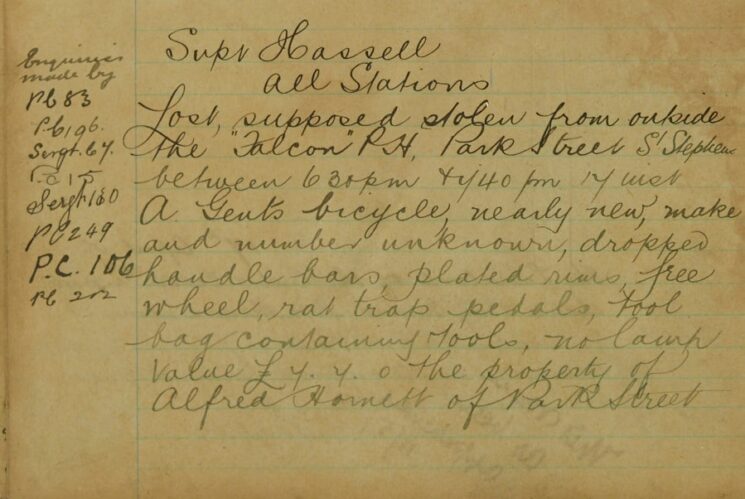 Enquiries
made by
PC 83
PC 196.
Sergt. 67.
P.C 15
Sergt 180
PC 249
P.C. 106
PC 202
Supt Hassell
All Stations
Lost, supposed stolen from outside
the "Falcon" P.H. Park Street St Stephens
between 6 30 pm & 7/40 pm 17 inst
A Gents bicycle, nearly new, make
and number unknown, dropped
handle bars, plated rims, free
wheel, rat trap pedals, tool
bag containing tools, no lamp
value £7. 7. 0 the property of
Alfred Hornett of Park Street